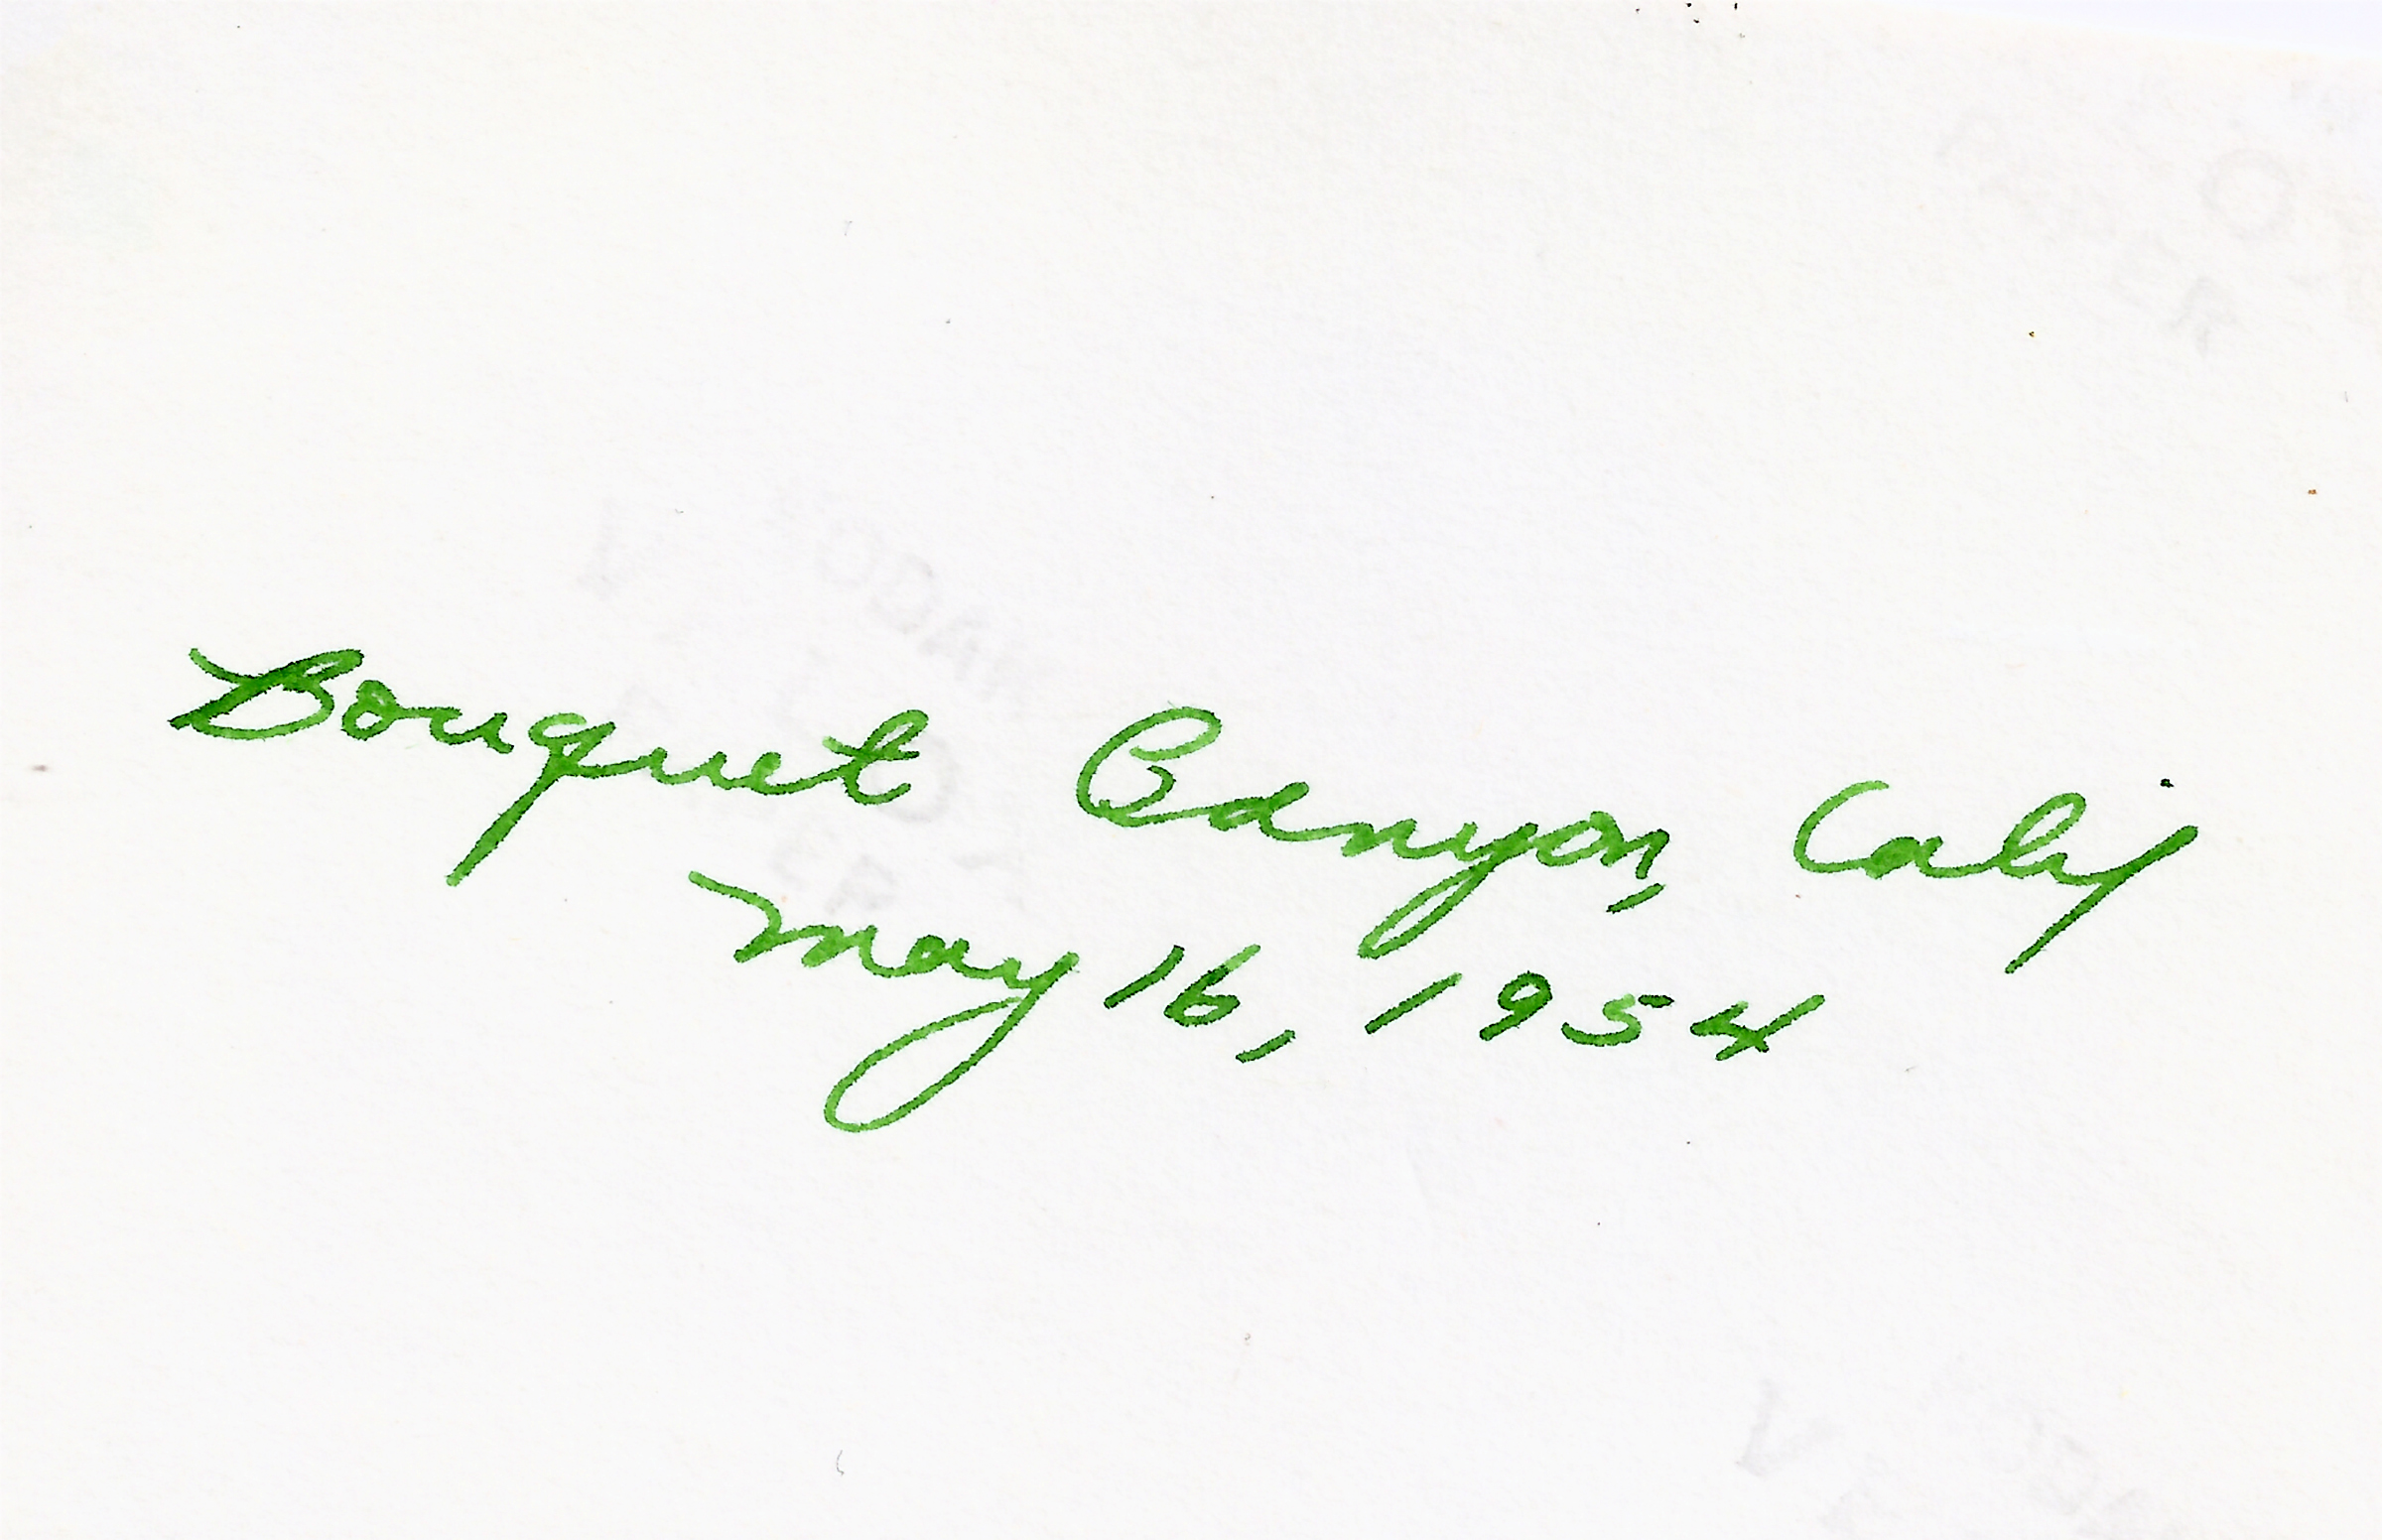 Bouquet Canyon, Calif
May 16, 1954